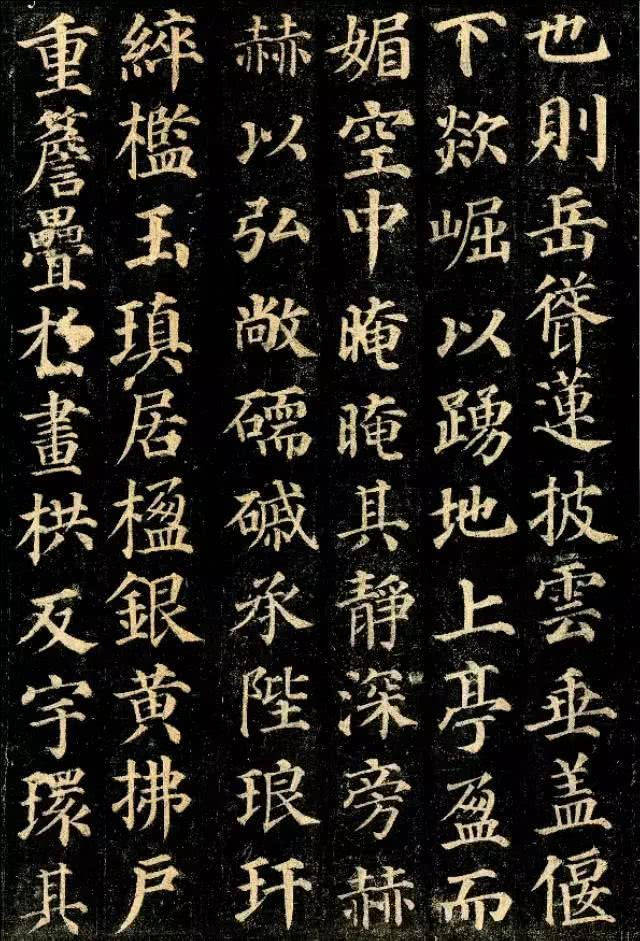 也則岳聳蓮披雲垂盖偃
下欻崛以踴地上亭盈而
媚空中晻晻其靜深旁赫
赫以弘敞礝磩承陛琅玕
綷檻玉瑱居楹銀黄拂戶
重簷疊於畫栱反宇環其